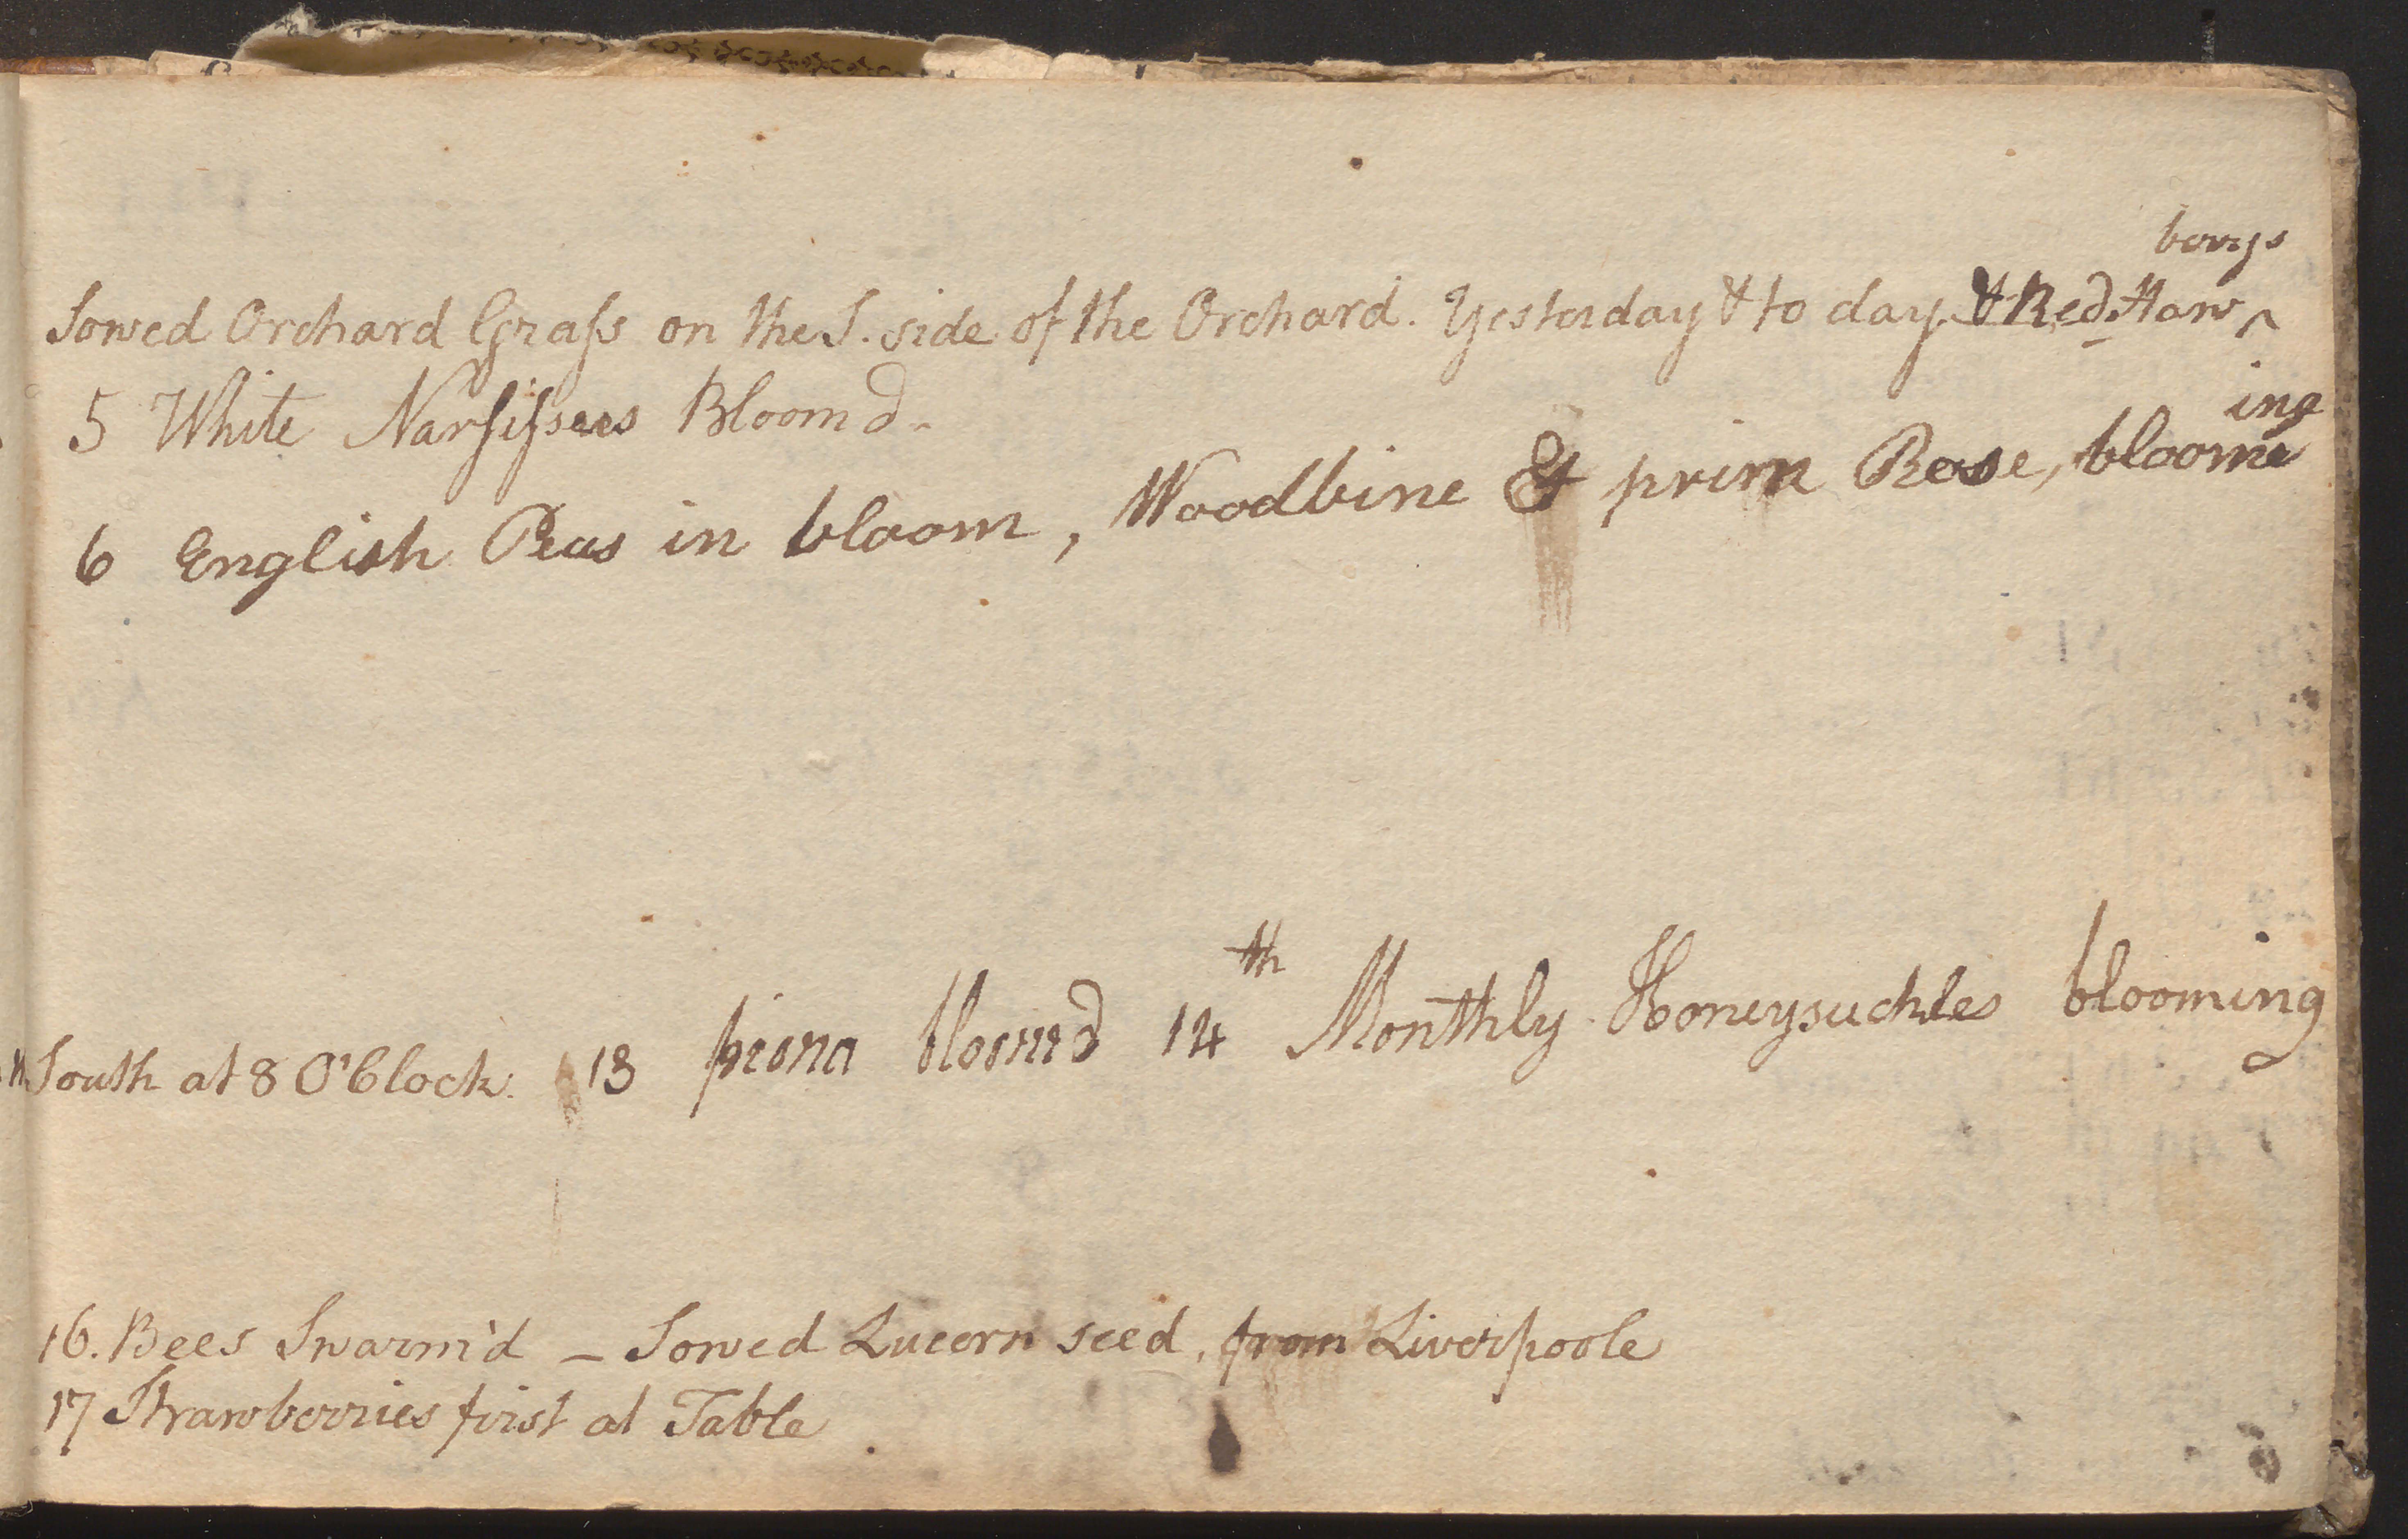 berrys
Sowed Orchard Grass on the S. side of the Orchard. Yesterday & to day. & Red Haw ^
5 White Narsissees Bloomd.
ing
6 English Peas in bloom, Woodbine & prim Rose, bloome
South at 8 O'Clock. 13 piona bloomd 14th Monthly Honeysuckles blooming
16. Bees Swarm'd – Sowed Lucern seed, from Liverpoole
17 Strawberries first at Table